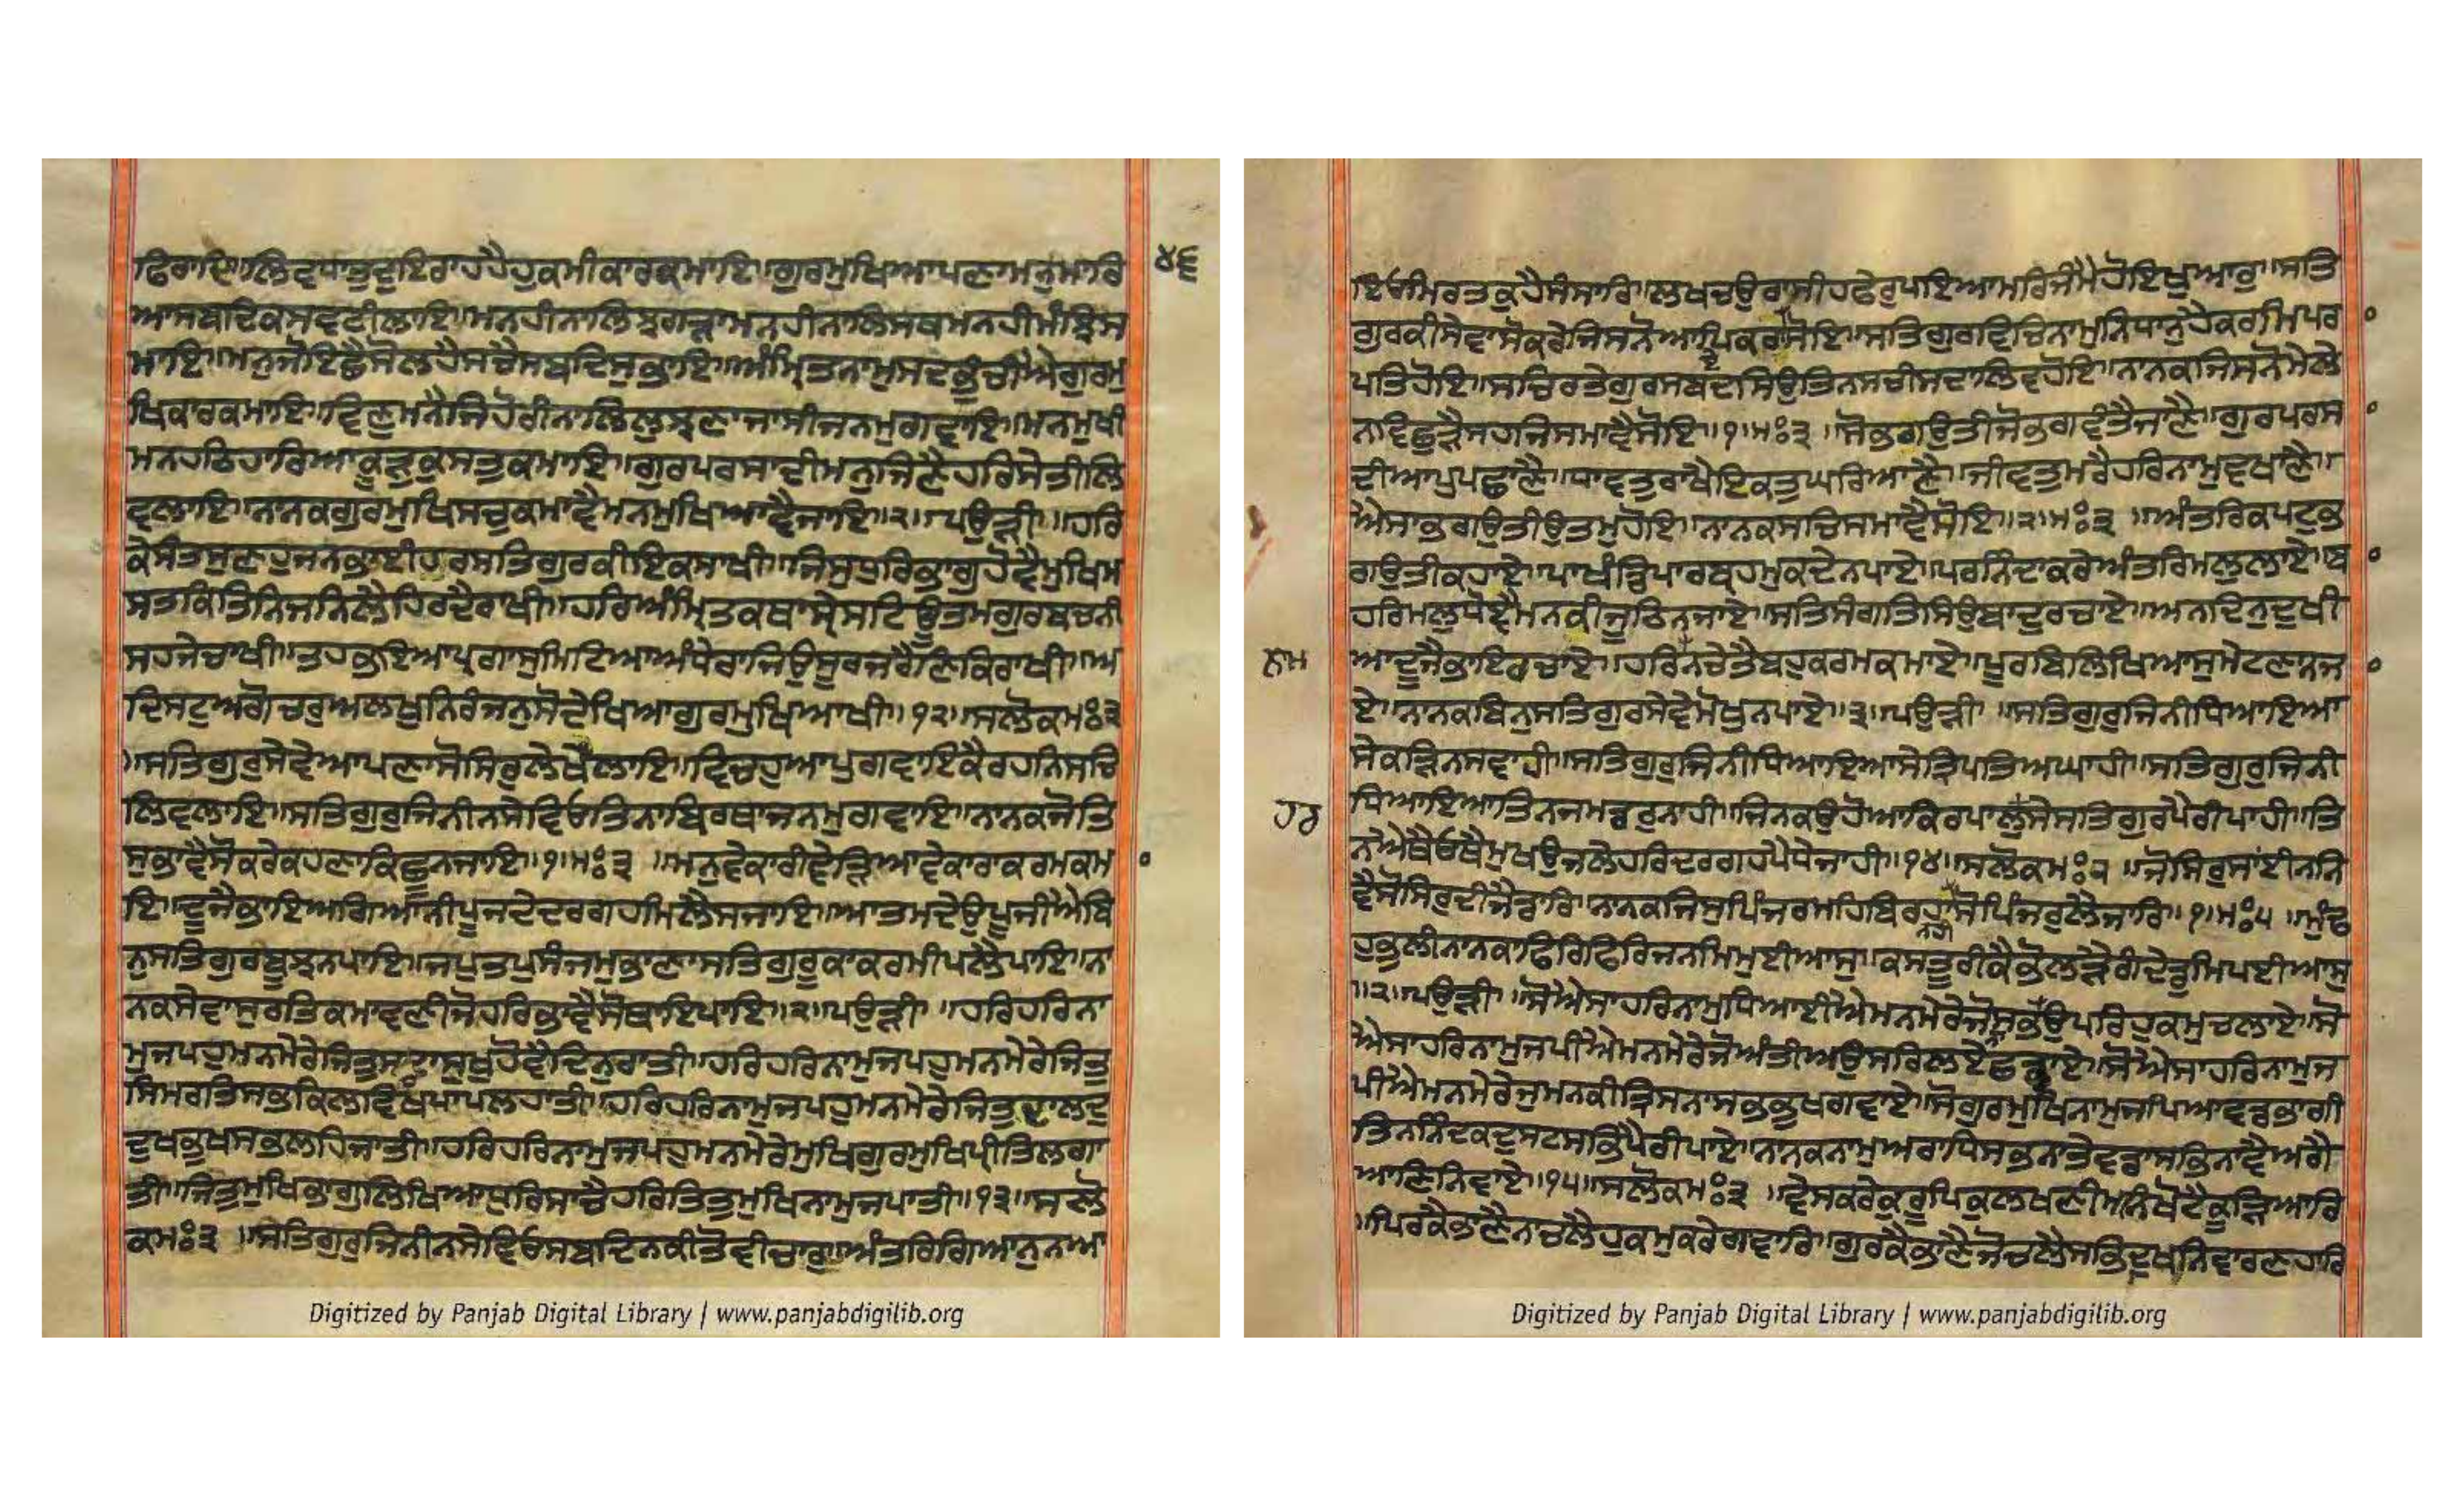 ਫਿਰਾਦਿ॥ਲਿਵਧਾਤੁਦੁਇਰਾਹਹੈਹੁਕਮੀਕਾਰਕਮਾਇ॥ਗੁਰਮੁਖਿਆਪਣਾਮਨੁਮਾਰਿ ੪੬
ਆਸਬਦਿਕਸਵਟੀਲਾਇ॥ਮਨਹੀਨਾਲਿਝਗੜਾਮਨਹੀਨਾਲਿਸਥਮਨਹੀਮੰਝਿਸ
ਮਾਇ॥ਮਨੁਜੋਇਛੈਸੋਲਹੈਸਚੈਸਬਦਿਸੁਭਾਇ॥ਅੰਮ੍ਰਿਤਨਾਮੁਸਦਭੁੰਚੀਐਗੁਰਮੁ
ਖਿਕਾਰਕਮਾਇ॥ਵਿਣੁਮਨੈਜਿਹੋਰੀਨਾਲਿਲੁਝਣਾਜਾਸੀਜਨਮੁਗਵਾਇ॥ਮਨਮੁਖੀ
ਮਨਹਠਿਹਾਰਿਆਕੂੜੁਕੁਸਤੁਕਮਾਇ॥ਗੁਰਪਰਸਾਦੀਮਨੁਜਿਣੈਹਰਿਸੇਤੀਲਿ
ਵਲਾਇ॥ਨਾਨਕਗੁਰਮੁਖਿਸਚੁਕਮਾਵੈਮਨਮੁਖਿਆਵੈਜਾਇ॥੨॥ਪਉੜੀ॥ਹਰਿ
ਕੇਸੰਤਸੁਣਹੁਜਨਭਾਈਹਰਸਤਿਗੁਰਕੀਇਕਸਾਖੀ॥ਜਿਸੁਧੁਰਿਭਾਗੁਹੋਵੈਮੁਖਿਮ
ਸਤਕਿਤਿਨਿਜਨਿਲੈਹਿਰਦੈਰਾਖੀ॥ਹਰਿਅੰਮ੍ਰਿਤਕਥਾਸ੍ਰੇਸਟਿਊਤਮਗੁਰਬਚਨੀ
ਸਹਜੇਚਾਖੀ॥ਤਹਭਇਆਪ੍ਰਗਾਸੁਮਿਟਿਆਅੰਧੇਰਾਜਿਉਸੂਰਜਰੈਣਿਕਿਰਾਖੀ॥ਅ
ਦਿਸਟੁਅਗੋਚਰੁਅਲਖੁਨਿਰੰਜਨੁਸੋਦੇਖਿਆਗੁਰਮੁਖਿਆਖੀ॥੧੨॥ਸਲੋਕਮਃ੩
॥ਸਤਿਗੁਰੁਸੇਵੇਆਪਣਾਸੋਸਿਰੁਲੇਖੈਲਾਇ॥ਵਿਚਹੁਆਪੁਗਵਾਇਕੈਰਹਨਿਸਚਿ
ਲਿਵਲਾਇ॥ਸਤਿਗੁਰੁਜਿਨੀਨਸੇਵਿਓਤਿਨਾਬਿਰਥਾਜਨਮੁਗਵਾਇ॥ਨਾਨਕਜੋਤਿ
ਸੁਭਾਵੈਸੋਕਰੇਕਹਣਾਕਿਛੂਨਜਾਇ॥੧॥ਮਃ੩॥ਮਨੁਵੇਕਾਰੀਵੇੜਿਆਵੇਕਾਰਾਕਰਮਕਮ
ਇ॥ਦੂਜੈਭਾਇਅਗਿਆਨੀਪੂਜਦੇਦਰਗਹਮਿਲੈਸਜਾਇ॥ਆਤਮਦੇਉਪੂਜੀਐਬਿ
ਨੁਸਤਿਗੁਰਬੂਝਨਪਾਇ॥ਜਪੁਤਪੁਸੰਜਮੁਭਾਣਾਸਤਿਗੁਰੂਕਾਕਰਮੀਪਲੈਪਾਇ॥ਨਾ
ਨਕਸੇਵਾਸੁਰਤਿਕਮਾਵਣੀਜੋਹਰਿਭਾਵੈਸੋਥਾਇਪਾਇ॥੨॥ਪਉੜੀ॥ਹਰਿਹਰਿਨਾ
ਮੁਜਪਹੁਮਨਮੇਰੇਜਿਤੁਸਦਾਸੁਖੁਹੋਵੈਦਿਨੁਰਾਤੀ॥ਹਰਿਹਰਿਨਾਮੁਜਪਹੁਮਨਮੇਰੇਜਿਤੁ
ਸਿਮਰਤਿਸਭਿਕਿਲਵਿਖਪਾਪਲਹਾਤੀ॥ਹਰਿਹਰਿਨਾਮੁਜਪਹੁਮਨਮੇਰੇਜਿਤੁਦਾਲਦੁ
ਦੁਖਭੁਖਸਭਲਹਿਜਾਤੀ॥ਹਰਿਹਰਿਨਾਮੁਜਪਹੁਮਨਮੇਰੇਮੁਖਿਗੁਰਮੁਖਿਪ੍ਰੀਤਿਲਗਾ
ਤੀ॥ਜਿਤੁਮੁਖਿਭਾਗੁਲਿਖਿਆਧੁਰਿਸਾਚੈਹਰਿਤਿਤੁਮੁਖਿਨਾਮੁਜਪਾਤੀ॥੧੩॥ਸਲੋ
ਕਮਃ੩॥ਸਤਿਗੁਰੁਜਿਨੀਨਸੇਵਿਓਸਬਦਿਨਕੀਤੋਵੀਚਾਰੁ॥ਅੰਤਰਿਗਿਆਨੁਨਆ
Digitized by Panjab Digital Library | www.panjabdigilib.org
ਇਓਮਿਰਤਕੁਹੈਸੰਸਾਰਿ॥ਲਖਚਉਰਾਸੀਹਫੇਰੁਪਇਆਮਰਿਜੰਮੈਹੋਇਖੁਆਰੁ॥ਸਤਿ
ਗੁਰਕੀਸੇਵਾਸੋਕਰੇਜਿਸਨੋਆਪਿਕਰਾਏਸੋਇ॥ਸਤਿਗੁਰਵਿਚਿਨਾਮੁਨਿਧਾਨੁਹੈਕਰਮਿਪਰ
ਪਤਿਹੋਇ॥ਸਚਿਰਤੇਗੁਰਸਬਦਸਿਉਤਿਨਸਚੀਸਦਾਲਿਵਹੋਇ॥ਨਾਨਕਜਿਸਨੋਮੇਲੇ
ਨਵਿਛੁੜੈਸਹਜਿਸਮਾਵੈਸੋਇ॥੧॥ਮਃ੩॥ਸੋਭਗਉਤੀਜੋਭਗਵੰਤੈਜਾਣੈ॥ਗੁਰਪਰਸ
ਦੀਆਪੁਪਛਾਣੈ॥ਧਾਵਤੁਰਾਖੈਇਕਤੁਘਰਿਆਣੈ॥ਜੀਵਤੁਮਰੈਹਰਿਨਾਮੁਵਖਾਣੈ॥
ਐਸਾਭਗਉਤੀਉਤਮੁਹੋਇ॥ਨਾਨਕਸਚਿਸਮਾਵੈਸੋਇ॥੨॥ਮਃ੩॥ਅੰਤਰਿਕਪਟੁਭ
ਗਉਤੀਕਹਾਏ॥ਪਾਖੰਡਿਪਾਰਬ੍ਰਹਮੁਕਦੇਨਪਾਏ॥ਪਰਨਿੰਦਾਕਰੇਅੰਤਰਿਮਲੁਲਾਏ॥ਬਾ
ਹਰਿਮਲੁਧੋਵੈਮਨਕੀਜੂਠਿਨਜਾਏ॥ਸਤਿਸੰਗਤਿਸਿਉਬਾਦੁਰਚਾਏ॥ਅਨਦਿਨੁਦੁਖੀ
ਨਾਮ ਆਦੂਜੈਭਾਇਰਚਾਏ॥ਹਰਿਨਚੇਤੈਬਹੁਕਰਮਕਮਾਏ॥ਪੂਰਬਿਲਿਖਿਆਸੁਮੇਟਣਾਨਜ
ਏ॥ਨਾਨਕਬਿਨੁਸਤਿਗੁਰਸੇਵੇਮੋਖੁਨਪਾਏ॥੩॥ਪਉੜੀ॥ਸਤਿਗੁਰੁਜਿਨੀਧਿਆਇਆ
ਸੇਕੜਿਨਸਵਾਹੀ॥ਸਤਿਗੁਰੁਜਿਨੀਧਿਆਇਆਸੇਤ੍ਰਿਪਤਿਅਘਾਹੀ॥ਸਤਿਗੁਰੁਜਿਨੀ
ਹਰ ਧਿਆਇਆਤਿਨਜਮਡਰੁਨਾਹੀ॥ਜਿਨਕਉਹੋਆਕਿਰਪਾਲੁਸੇਸਤਿਗੁਰਪੈਰੀਪਾਹੀ॥ਤਿ
ਨਐਥੈਓਥੈਮੁਖਉਜਲੇਹਰਿਦਰਗਹਪੈਧੇਜਾਹੀ॥੧੪॥ਸਲੋਕਮਃ੨॥ਜੋਸਿਰੁਸਾਂਈਨਨਿ
ਵੈਸੋਸਿਰੁਦੀਜੈਡਾਰਿ॥ਨਾਨਕਜਿਸੁਪਿੰਜਰਮਹਿਬਿਰਹਾਨਹੀਸੋਪਿੰਜਰੁਲੈਜਾਰਿ॥੧॥ਮਃ੫॥ਮੁੰਢ
ਹੁਭੁਲੀਨਾਨਕਾਫਿਰਿਫਿਰਿਜਨਮਿਮੁਈਆਸੁ॥ਕਸਤੂਰੀਕੈਭੋਲੜੈਗੰਦੇਡੁਮਿਪਈਆਸੁ
॥੨॥ਪਉੜੀ॥ਸੋਐਸਾਹਰਿਨਾਮੁਧਿਆਈਐਮਨਮੇਰੇਜੋਸਭਨਾਉਪਰਿਹੁਕਮੁਚਲਾਏ॥ਸੋ
ਐਸਾਹਰਿਨਾਮੁਜਪੀਐਮਨਮੇਰੇਜੋਅੰਤੀਅਉਸਰਿਲਏਛਡਾਏ॥ਸੋਐਸਾਹਰਿਨਾਮੁਜ
ਪੀਐਮਨਮੇਰੇਜੁਮਨਕੀਤ੍ਰਿਸਨਾਸਭਭੁਖਗਵਾਏ॥ਸੋਗੁਰਮੁਖਿਨਾਮੁਜਪਿਆਵਡਭਾਗੀ
ਤਿਨਨਿੰਦਕਦੁਸਟਸਭਿਪੈਰੀਪਾਏ॥ਨਾਨਕਨਾਮੁਅਰਾਧਿਸਭਨਾਤੇਵਡਾਸਭਿਨਾਵੈਅਗੈ
ਆਣਿਨਿਵਾਏ॥੧੫॥ਸਲੋਕਮਃ੩॥ਵੇਸਕਰੇਕੁਰੂਪਿਕੁਲਖਣੀਮਨਿਖੋਟੈਕੂੜਿਆਰਿ
॥ਪਿਰਕੈਭਾਣੈਨਾਚਲੈਹੁਕਮੁਕਰੇਗਾਵਾਰਿ॥ਗੁਰਕੈਭਾਣੈਜੋਚਲੈਸਭਿਦੁਖਨਿਵਾਰਣਹਾਰਿ
Digitized by Panjab Digital Library | www.panjabdigilib.org